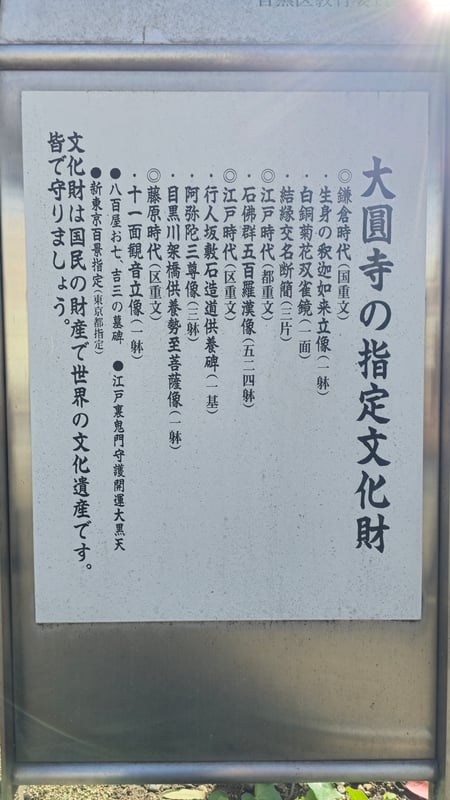 大圓寺の指定文化財
◎鎌倉時代(国重文)
・生身の釈迦如来立像(一躰)
・白銅菊花双雀鏡(一面)
・結縁交名断簡(三片)
◎江戸時代(都重文)
・石佛群五百羅漢像(五二四躰)
◎江戸時代(区重文)
・行人坂敷石造道供養碑(一基)
・阿弥陀三尊像(三躰)
・目黒川架橋供養勢至菩薩像(一躰)
◎藤原時代(区重文)
・十一面観音立像(一躰)
●八百屋お七、吉三の墓碑 ●江戸裏鬼門守護開運大黒天
●新東京百景指定(東京都指定)
文化財は国民の財産で世界の文化遺産です。
皆で守りましょう。